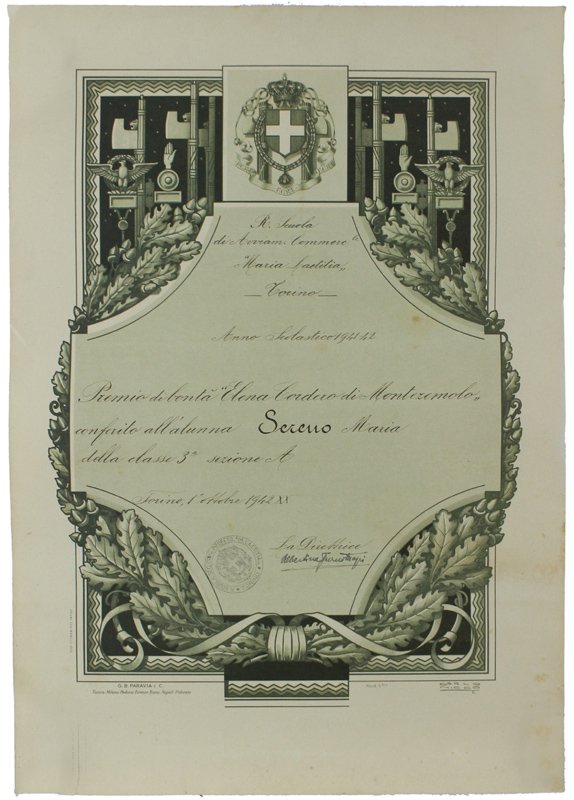 R. Scuola
di Avviam. Commerc.le
"Maria Laetitia„
— Torino —
Anno Scolastico 1941-42
Premio di bontà "Elena Cordero di Montezemolo„
conferito all'alunna Sereno Maria
della classe 3ª sezione A
Torino, 1° ottobre 1942 XX
La Direttrice
G. B. PARAVIA & C.
Torino-Milano-Padova-Firenze-Roma-Napoli-Palermo